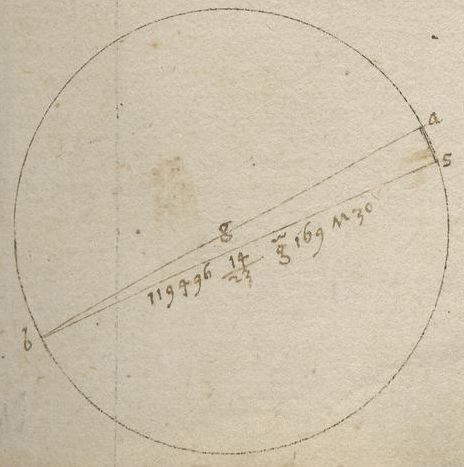 a
s
g
119496 14/23 g̃ 169 M 30
b